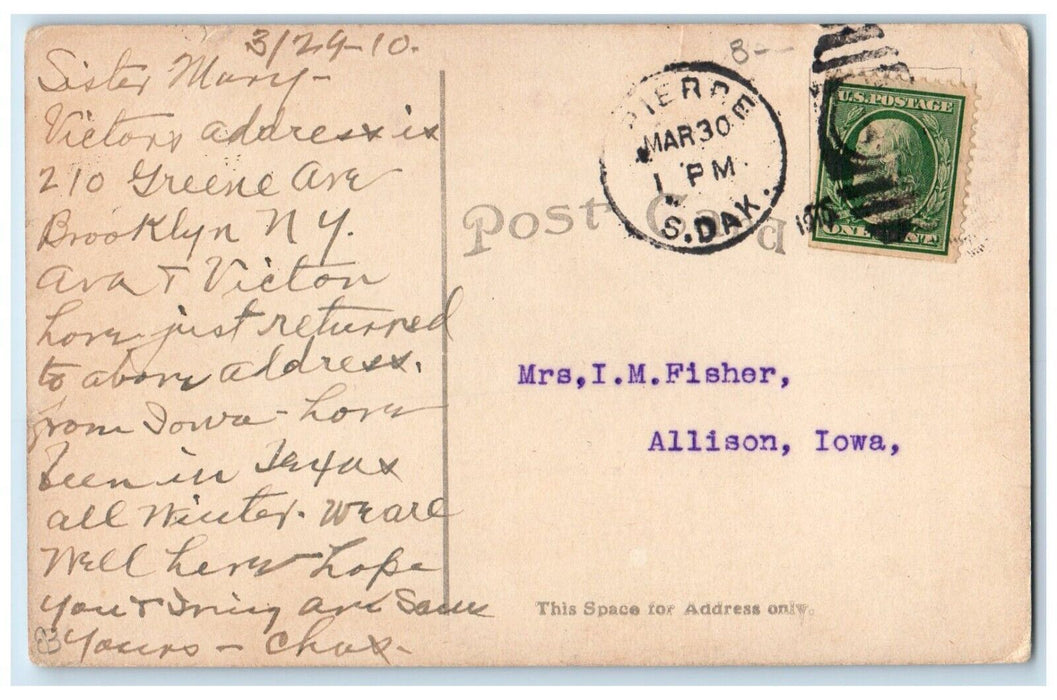 3/29-10.
Sister Mary-
Victors address is
210 Greene Ave
Brooklyn N Y.
Ava & Victor
have just returned
to above address.
from Iowa - have
been in Texas
all Winter. We are
Well here hope
you & Irving are Same
Yours - Chas.
8-
PIERRE
MAR 30
1 PM
S. DAK.
1910
U.S. POSTAGE
ONE CENT
Post Card
Mrs,I.M.Fisher,
Allison, Iowa,
This Space for Address only.